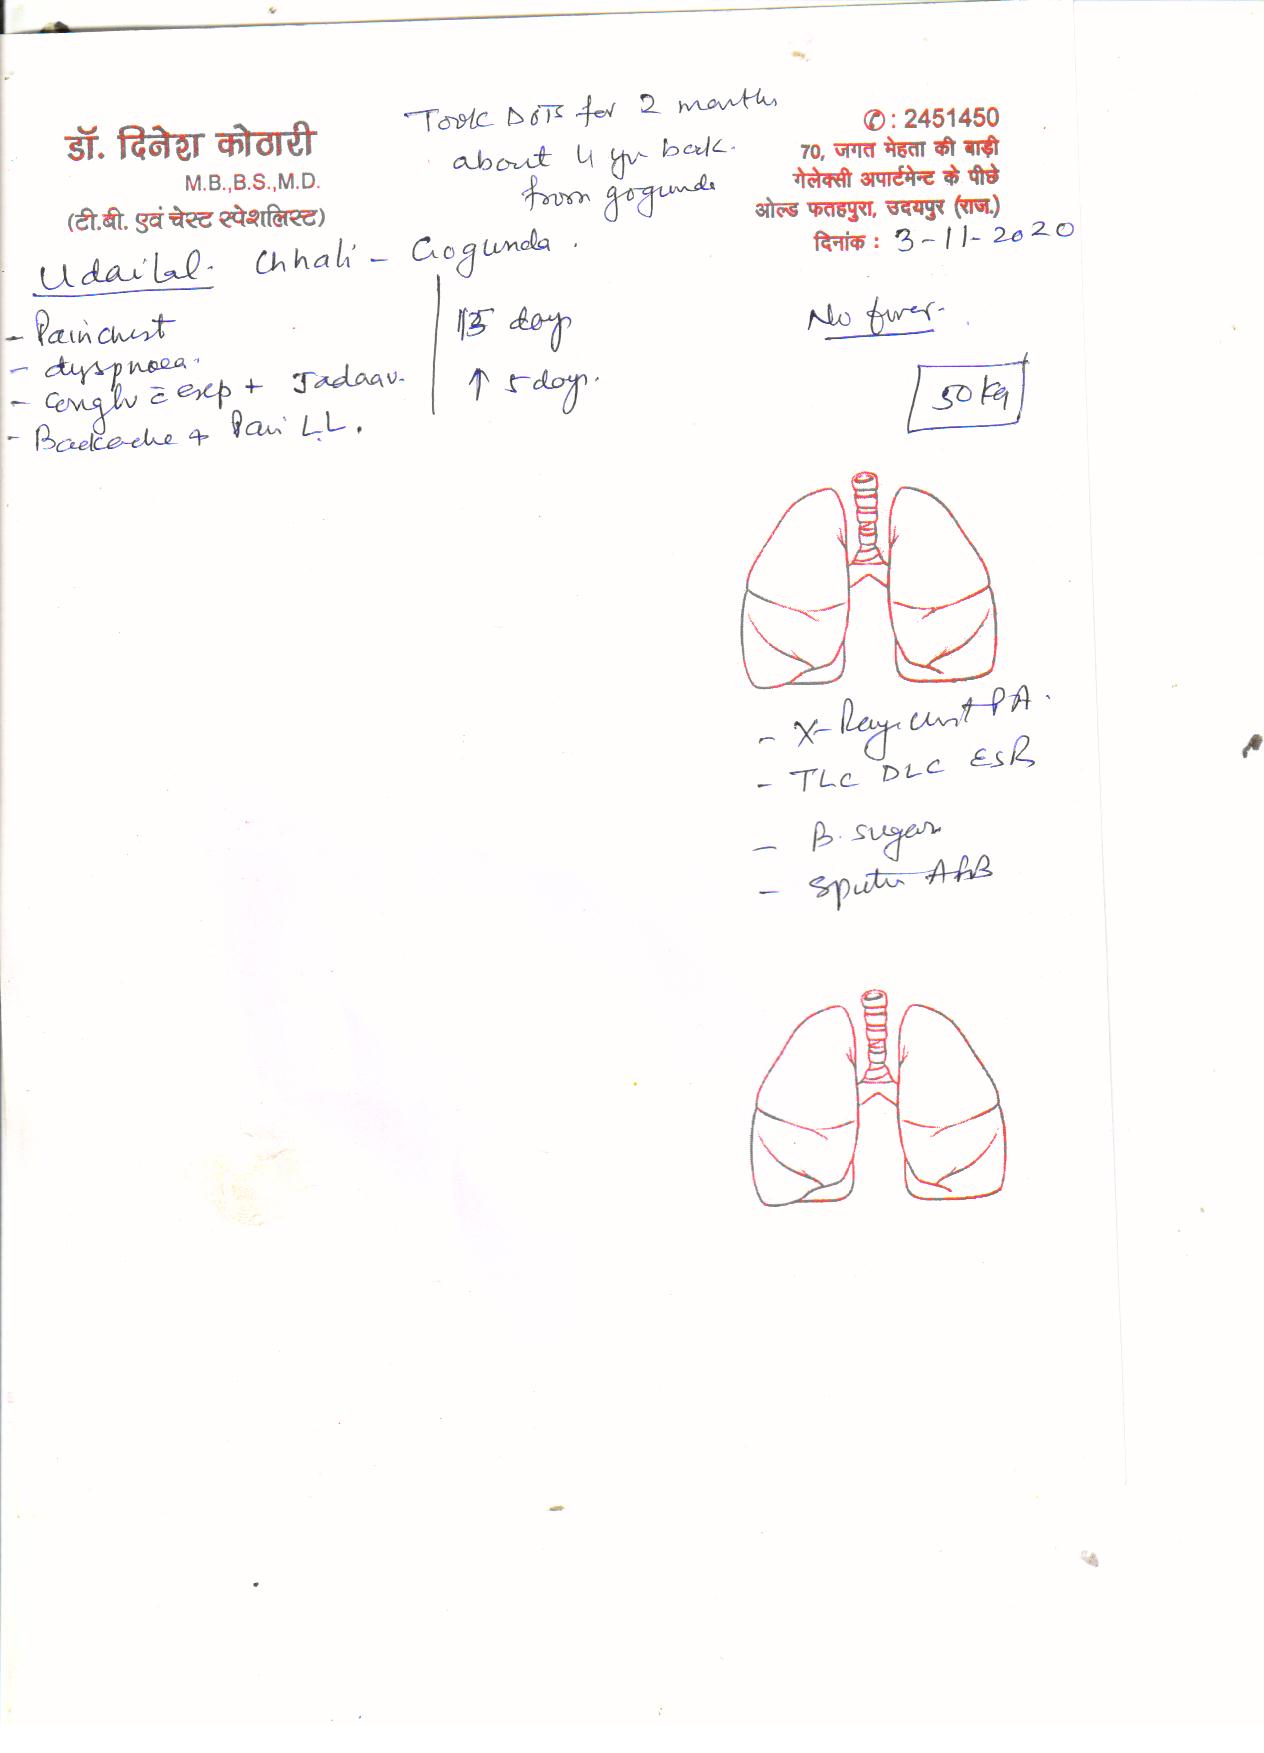 Took DOTS for 2 months
about 4 yr back.
from gogunda
डॉ. दिनेश कोठारी
M.B.,B.S.,M.D.
(टी.बी. एवं चेस्ट स्पेशलिस्ट)
✆ : 2451450
70, जगत मेहता की बाड़ी
गेलेक्सी अपार्टमेन्ट के पीछे
ओल्ड फतहपुरा, उदयपुर (राज.)
दिनांक : 3-11-2020
Udailal. Chhali - Gogunda.
- Pain chest
- dyspnoea.
- Cough c̄ exp +
- Backache + Pain L.L.
15 days
↑ 5 days.
No fever.
50 kg
- X-Ray chest PA.
- TLC DLC ESR
- B. sugar
- Sputum AFB